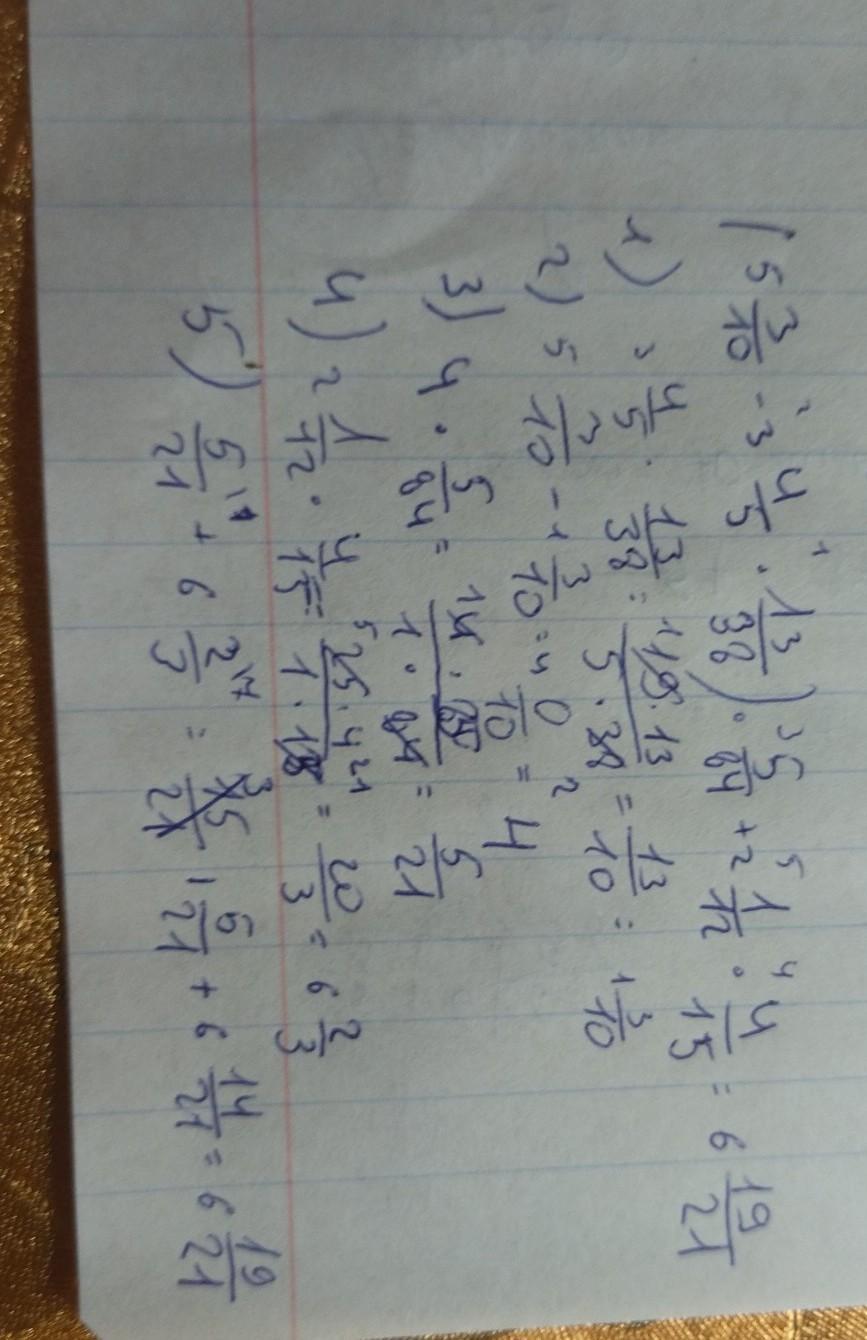 ( 5 3/10 - 3 4/5 · 13/38 ) · 5/84 + 2 1/12 · 4/15 = 6 19/21
1) 3 4/5 · 13/38 = 19·13/5·38 = 13/10 = 1 3/10
2) 5 3/10 - 1 3/10 = 4 0/10 = 4
3) 4 · 5/84 = 4·5/1·84 = 5/21
4) 2 1/12 · 4/15 = 25·4/1·15 = 20/3 = 6 2/3
5) 5/21 + 6 2/3 = 5/21 + 6 14/21 = 6 19/21